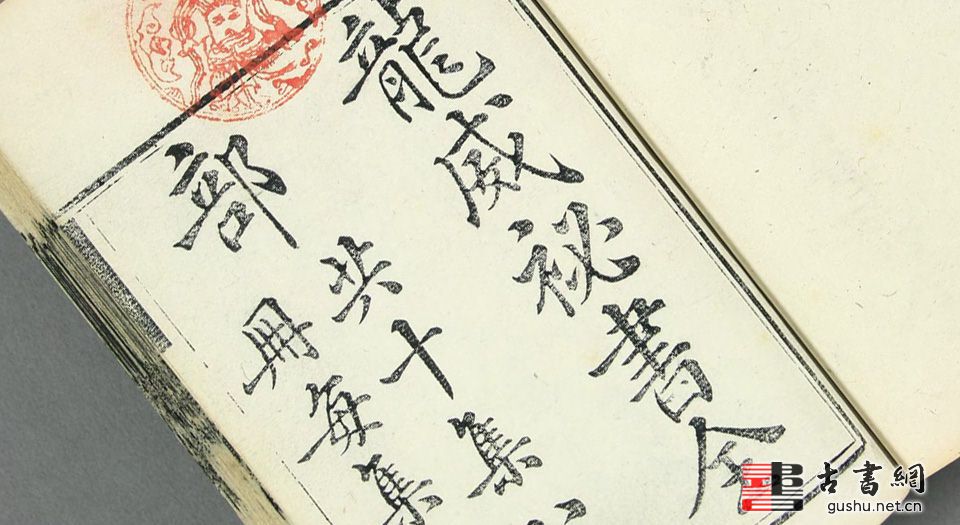 龍威祕書全
部
共十集
冊每集
古書網
gushu.net.cn